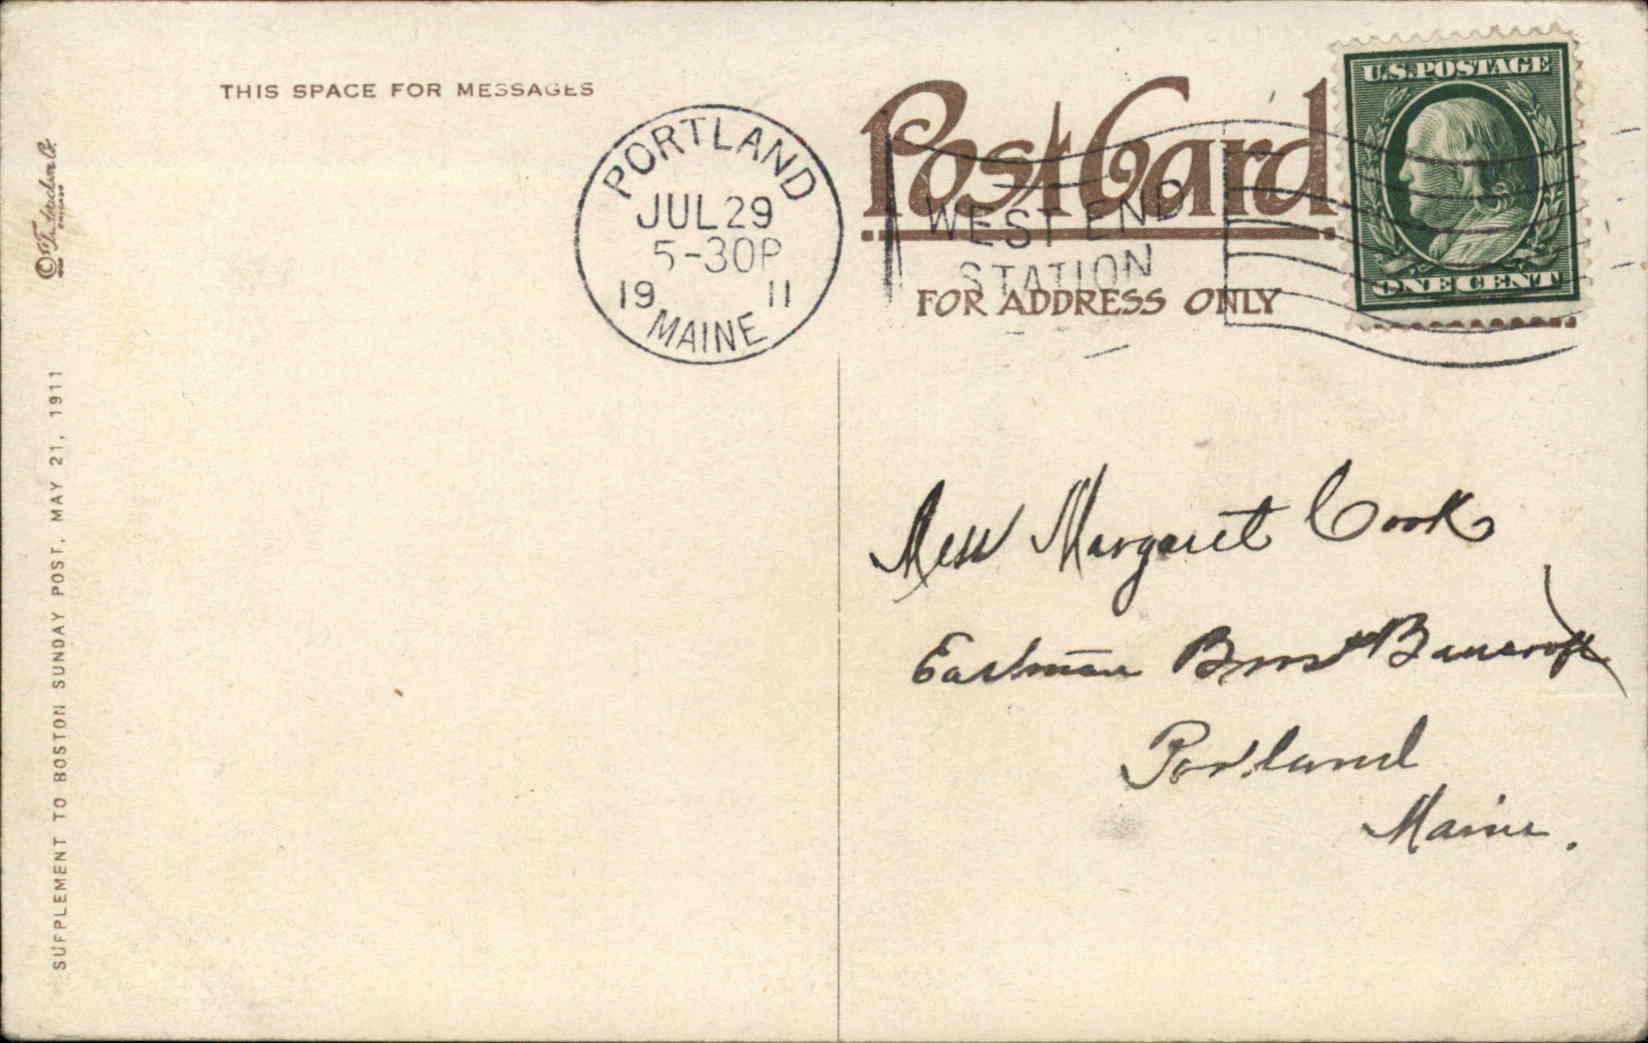 THIS SPACE FOR MESSAGES
PORTLAND
JUL 29
5-30P
19 11
MAINE
WEST END
STATION
Post Card
FOR ADDRESS ONLY
U.S. POSTAGE
ONE CENT
Miss Margaret Cook
Eastman Bros & Bancroft
Portland
Maine.
SUPPLEMENT TO BOSTON SUNDAY POST, MAY 21, 1911
©